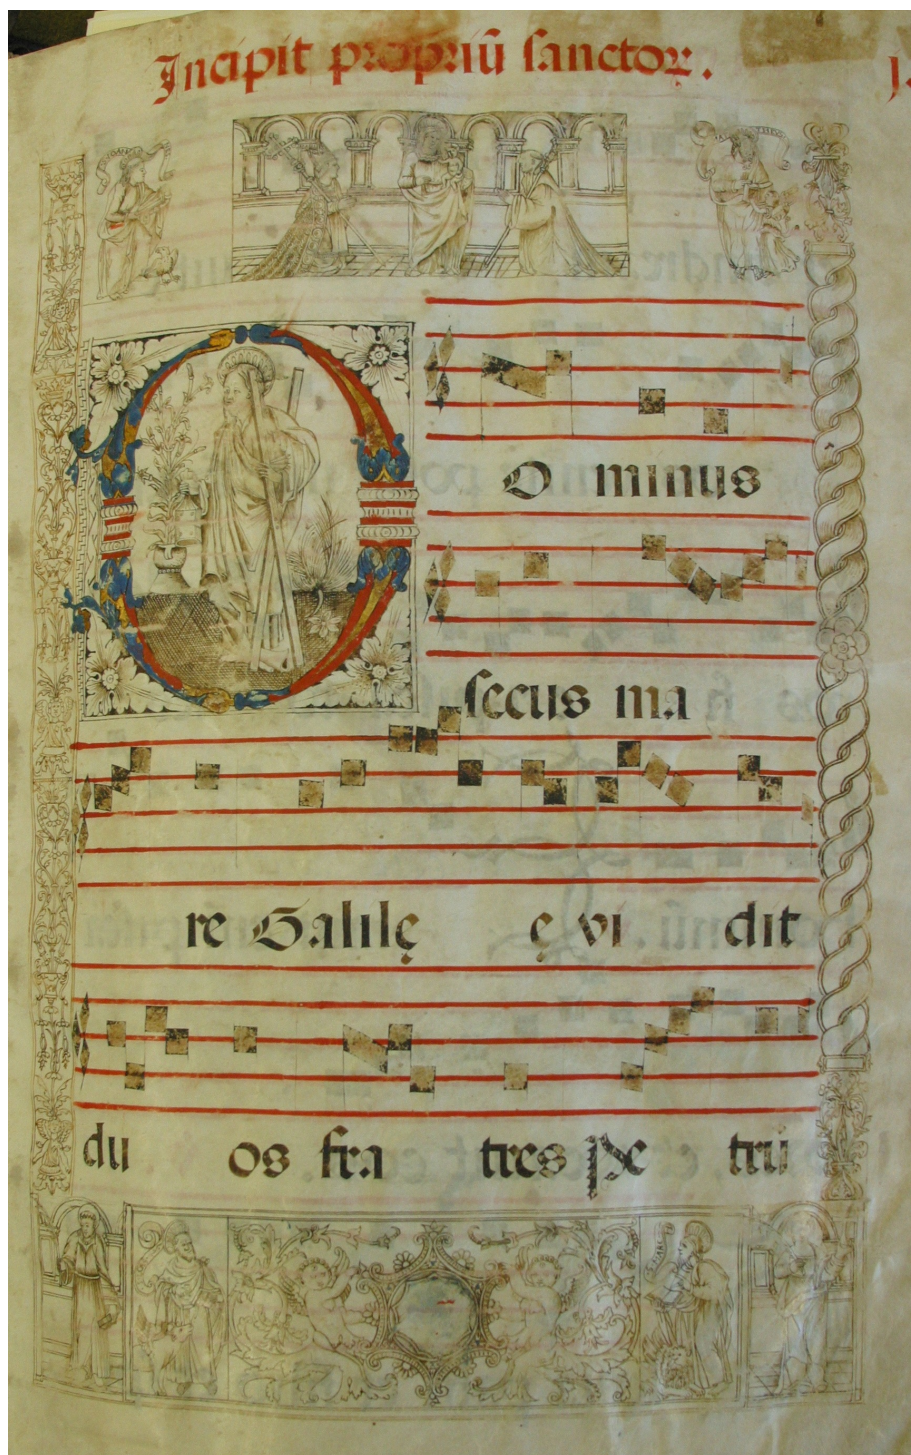 Incipit propriū sanctoꝝ.
DOminus
secus ma
re Galilę ę vi dit
du os fra tres pe trū